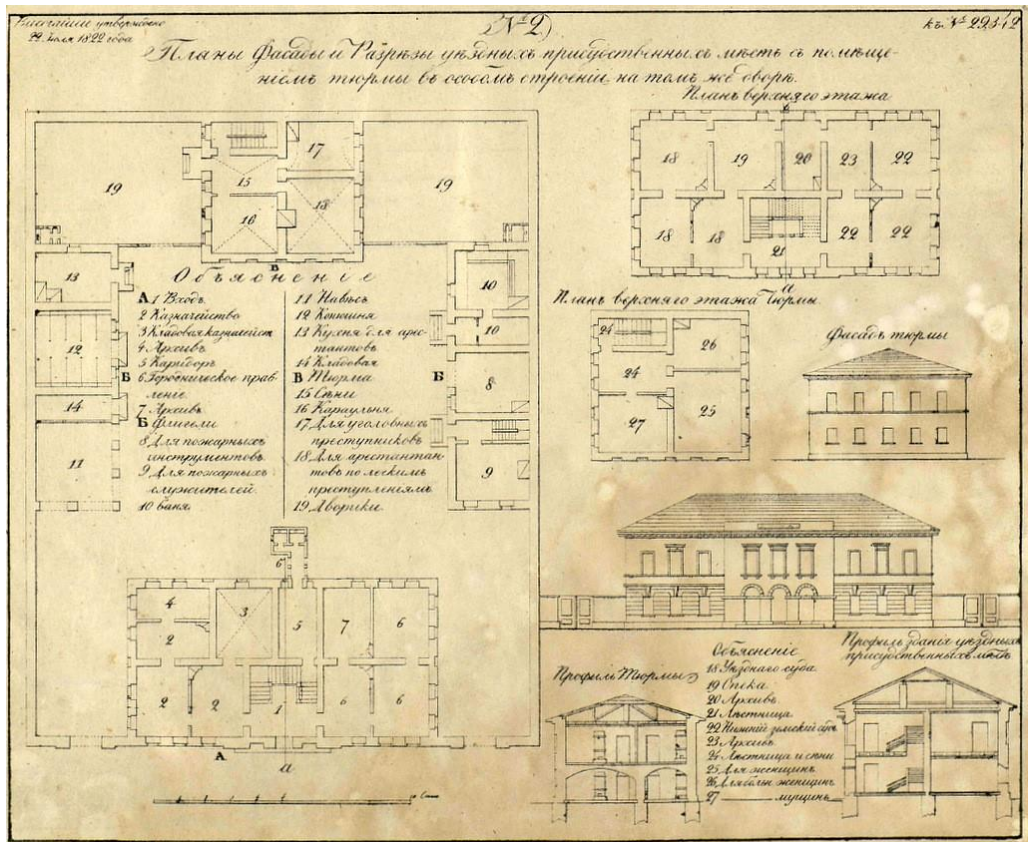 Высочайше утверждено
22. Июля 1822 года
№ 2)
къ № 29542
Планы Фасады и Разрѣзы уѣздныхъ присудственныхъ мѣстъ съ помѣще-
ніемъ тюрмы въ особомъ строеніи на томъ же дворѣ.
Планъ верхняго этажа
19
15
17
16
18
19
18
19
20
23
22
18
18
21
22
22
а
В
Объясненіе
А 1 Входъ
2 Казначейство
3 Кладовая казначейст
4 Архивъ
5 Каридоръ
6 Городническое прав-
леніе.
7 Архивъ
Б Флигели
8 Для пожарныхъ
инструментовъ
9 Для пожарныхъ
служителей.
10 баня
11 Навѣсъ
12 Конюшня
13 Кухня для арес-
тантовъ
14 Кладовая
В Тюрма
15 Сѣни
16 Караульня
17 Для уголовныхъ
преступниковъ
18 Для арестантан-
товъ по легкимъ
преступленіямъ
19 Дворики
13
12
Б
14
11
10
10
Б
8
9
Планъ верхняго этажа Тюрмы
24
26
24
27
25
Фасадъ тюрмы
6
4
3
5
7
6
2
2
2
1
6
6
А
а
Профиль Тюрмы
Объясненіе
18 Уѣзднаго суда
19 Опека
20 Архивъ
21 Лѣстница
22 Нижній земскій судъ
23 Архивъ
24 Лѣстница и сѣни
25 Для женщинъ
26 Для больн женщинъ
27 мущинъ
Профиль зданія уѣздныхъ
присудственныхъ мѣстъ